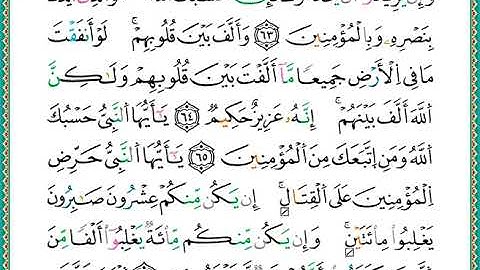 بِنَصْرِهِۦ وَبِالْمُؤْمِنِينَ ٦٣ وَأَلَّفَ بَيْنَ قُلُوبِهِمْۚ لَوْ أَنفَقْتَ
مَا فِي الْأَرْضِ جَمِيعًا مَّا أَلَّفْتَ بَيْنَ قُلُوبِهِمْ وَلَٰكِنَّ
اللَّهَ أَلَّفَ بَيْنَهُمْۚ إِنَّهُۥ عَزِيزٌ حَكِيمٌ ٦٤ يَٰأَيُّهَا النَّبِيُّ حَسْبُكَ
اللَّهُ وَمَنِ اتَّبَعَكَ مِنَ الْمُؤْمِنِينَ ٦٥ يَٰأَيُّهَا النَّبِيُّ حَرِّضِ
الْمُؤْمِنِينَ عَلَى الْقِتَالِۚ إِن يَكُن مِّنكُمْ عِشْرُونَ صَٰبِرُونَ
يَغْلِبُوا مِاْئَتَيْنِۚ وَإِن يَكُن مِّنكُم مِّاْئَةٌ يَغْلِبُوا أَلْفًا مِّنَ